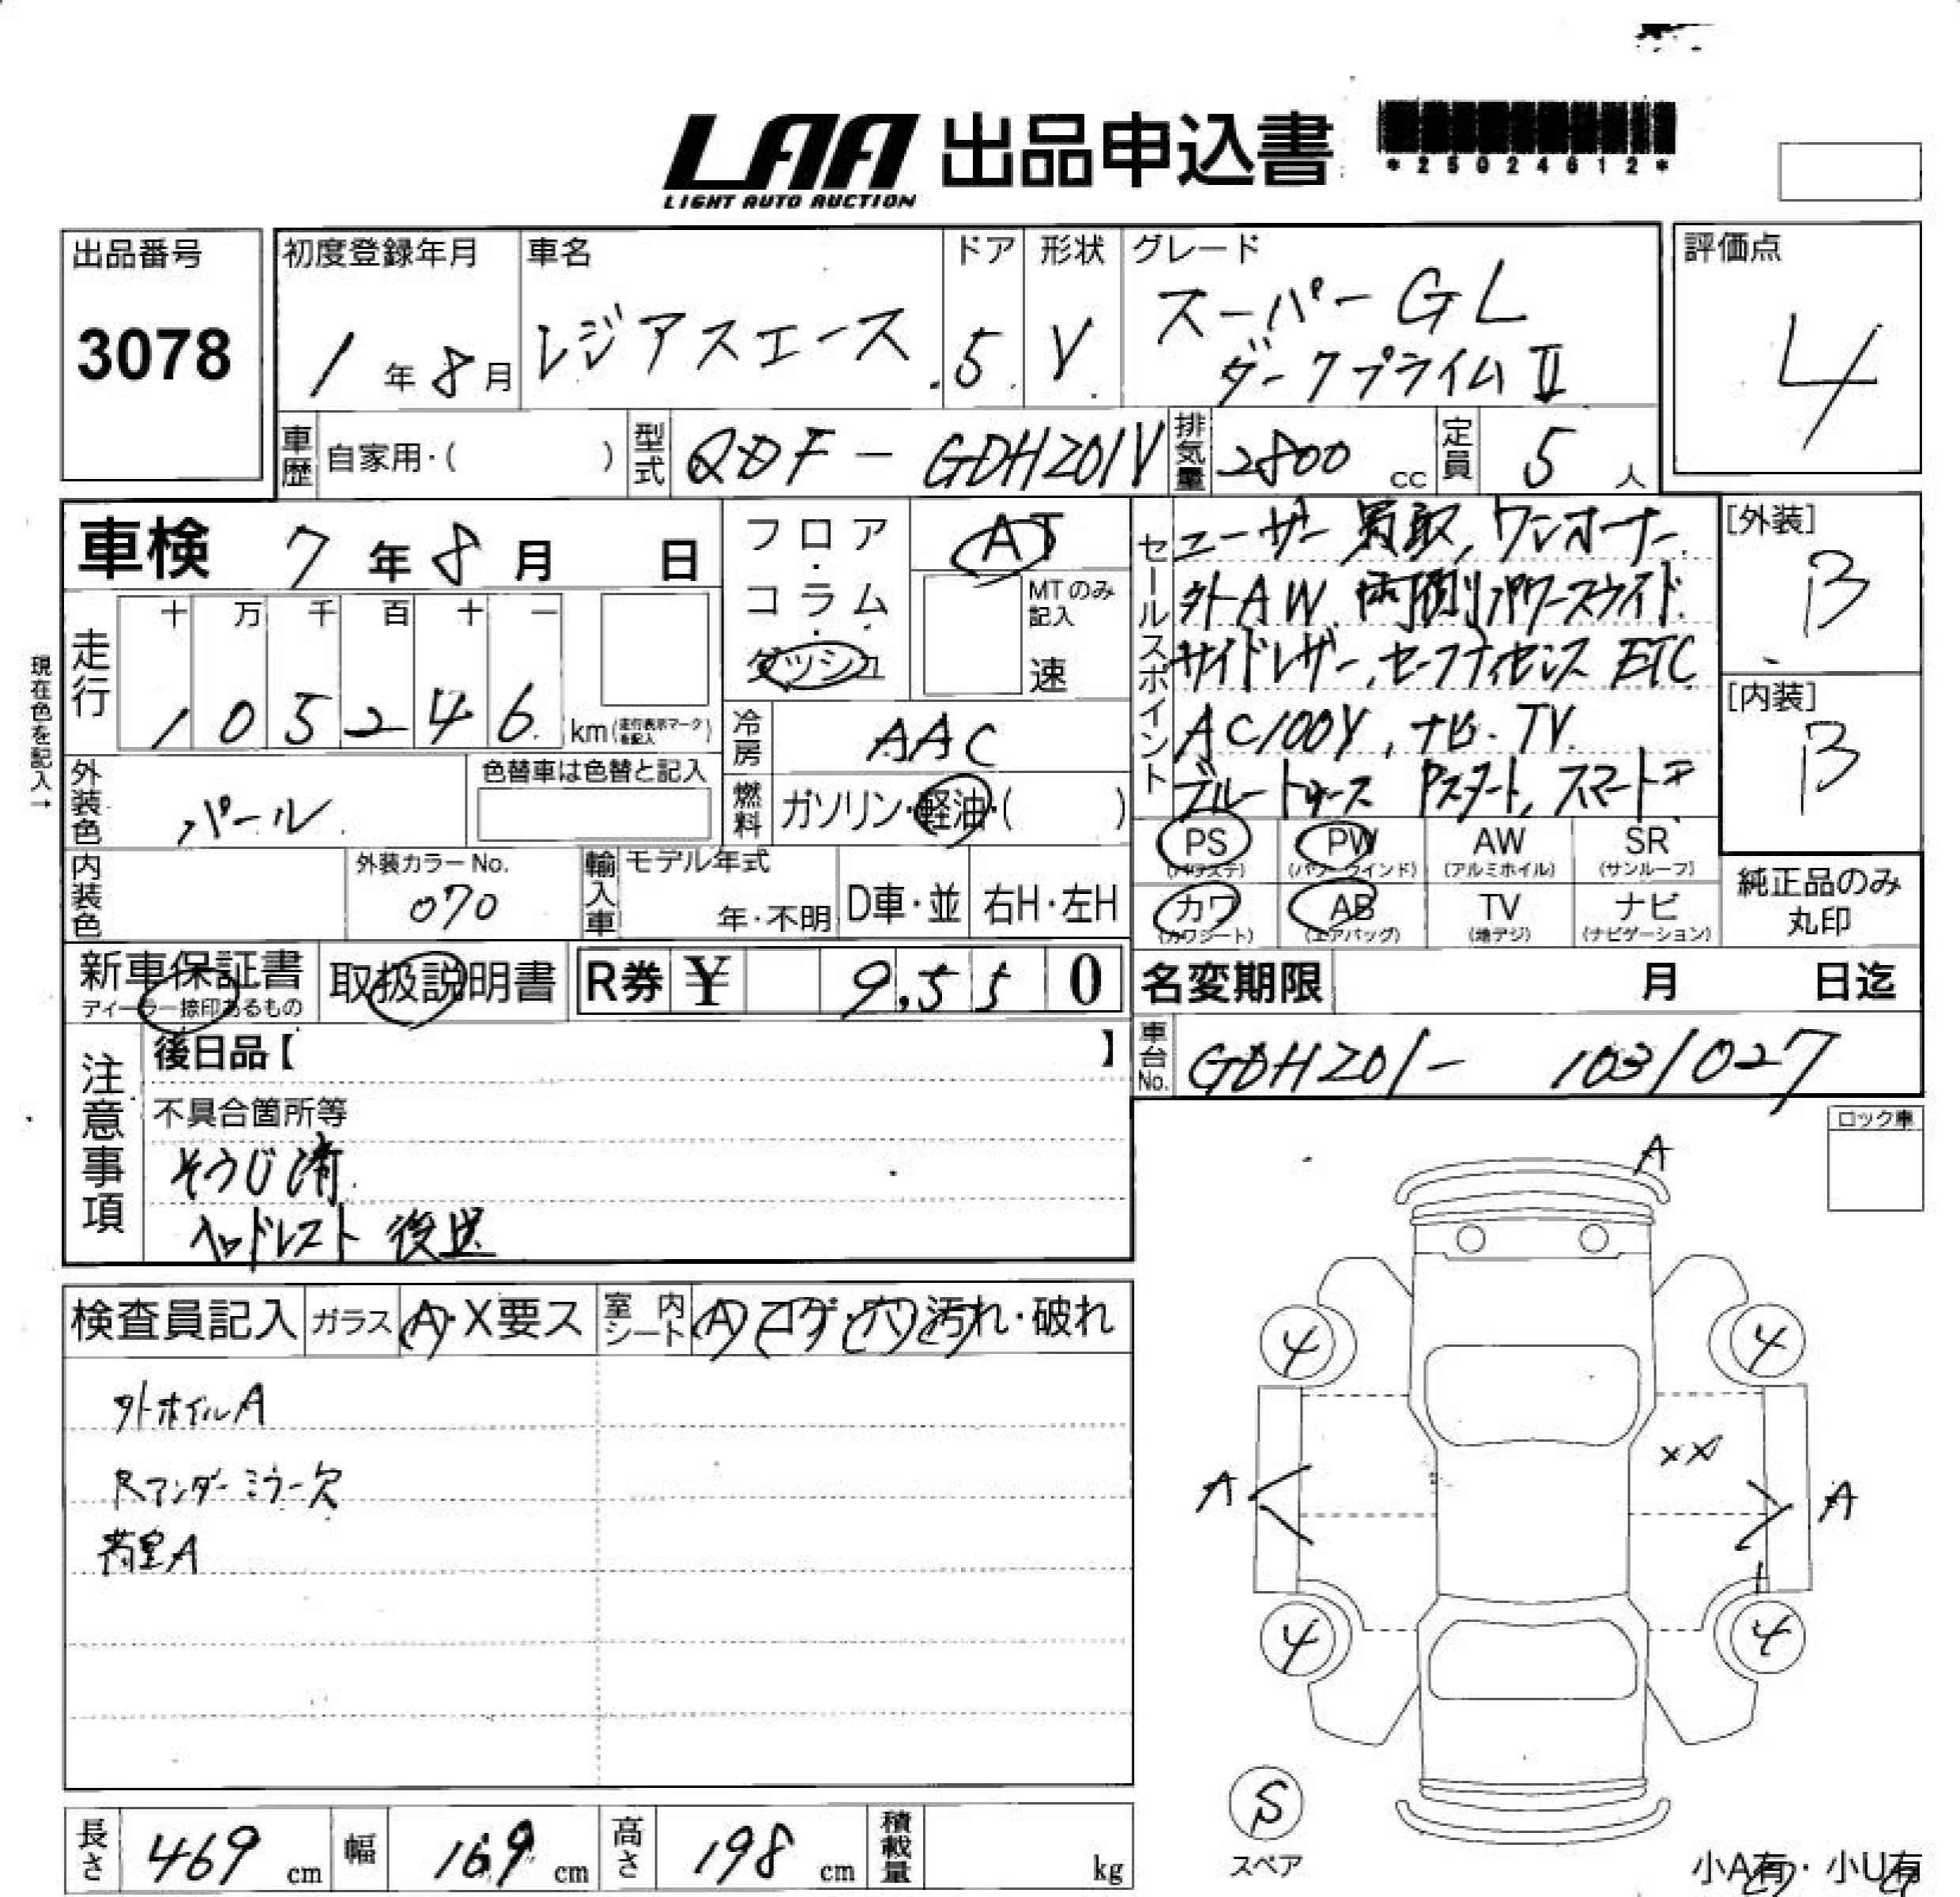 LAA 出品申込書
LIGHT AUTO AUCTION
*25024612*
出品番号
3078
初度登録年月
1年8月
車名
レジアスエース
ドア
5
形状
V
グレード
スーパーGL
ダークプライムⅡ
評価点
4
車歴
自家用・( )
型式
QDF-GDH201V
排気量
2800 cc
定員
5人
車検 7年8月 日
走行
十 万 千 百 十 一
1 0 5 2 4 6
km(走行表示マークを記入)
現在色を記入→
フロア・コラム・ダッシュ
AT
MTのみ記入
速
冷房
AAC
燃料
ガソリン・軽油・( )
セールスポイント
ユーザー買取, ワンオーナー
外AW 両側パワースライド
サイドレザー, セーフティセンス ETC
AC100V, ナビ・TV
ブルートゥース Pスタート, スマートキー
[外装]
B
[内装]
B
外装色
パール
色替車は色替と記入
内装色
外装カラーNo.
070
輸入車
モデル年式
年・不明
D車・並
右H・左H
PS
(パワステ)
PW
(パワーウインド)
AW
(アルミホイル)
SR
(サンルーフ)
カワ
(カワシート)
AB
(エアバッグ)
TV
(地デジ)
ナビ
(ナビゲーション)
純正品のみ
丸印
新車保証書
ディーラー捺印あるもの
取扱説明書
R券 ¥ 9,550
名変期限 月 日迄
車台No.
GDH201-1031027
注意事項
後日品【 】
不具合箇所等
そうじ済
ヘッドレスト後送
ロック車
検査員記入
ガラス
A・X要ス
室内シート
A・コゲ・穴・汚れ・破れ
外ホイルA
Rアンダーミラー欠
荷室A
A
4
4
XX
A
A
4
4
S
スペア
長さ
469 cm
幅
169 cm
高さ
198 cm
積載量
kg
小A有・小U有